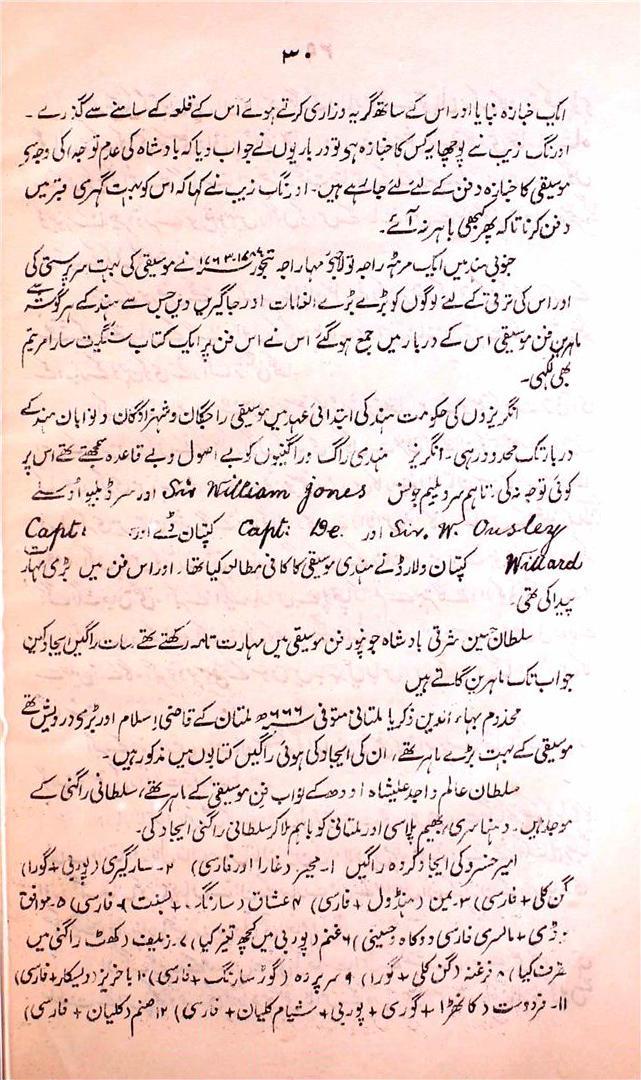 ۳۰
ایک جنازہ بنایا اور اس کے ساتھ گریہ وزاری کرتے ہوئے اس کے قلعہ کے سامنے سے گذرے۔
اورنگ زیب نے پوچھا یہ کس کا جنازہ ہی تو درباریوں نے جواب دیا کہ بادشاہ کی عدم توجہ کی وجہ سے
موسیقی کا جنازہ دفن کے لئے لئے جا رہے ہیں۔ اورنگ زیب نے کہا کہ اس کو بہت گہری قبر میں
دفن کرنا تاکہ پھر کبھی باہر نہ آئے۔
جنوبی ہند میں ایک مرہٹہ راجہ تولاجی مہاراجہ تنجور ۱۷۶۳-۱۷۸۷ نے موسیقی کی بہت سرپرستی کی
اور اس کی ترقی کے لئے لوگوں کو بڑے بڑے انعامات اور جاگیریں دیں جس سے ہند کے ہر گوشہ سے
ماہرین فن موسیقی اس کے دربار میں جمع ہوگئے اس نے اس فن پر ایک کتاب سنگیت سارامریتم
بھی لکھی۔
انگریزوں کی حکومت ہند کی ابتدائی عہد میں موسیقی راجگان و شہزادگان و نوابان ہند کے
دربار تک محدود رہی۔ انگریز ہندی راگ و راگنیوں کو بے اصول و بے قاعدہ سمجھتے تھے اس پر
کوئی توجہ نہ کی۔ تاہم سر ولیم جونس Sir William Jones اور سر ڈبلیو اوسلے
Sir. W. Ousley اور Capt: De. کپتان ڈے اور Capt:
Willard کپتان ولارڈ نے ہندی موسیقی کا کافی مطالعہ کیا تھا۔ اور اس فن میں بڑی مہارت
پیدا کی تھی۔
سلطان حسین شرقی بادشاہ جونپور فن موسیقی میں مہارت تامہ رکھتے تھے سات راگیں ایجاد کیں
جو اب تک ماہرین گاتے ہیں
مخدوم بہاء الدین ذکریا ملتانی متوفی ۶۶۶ھ ملتان کے قاضی اسلام اور بڑی درویش تھے
موسیقی کے بہت بڑے ماہر تھے، ان کی ایجاد کی ہوئی راگیں کتابوں میں مذکور ہیں۔
سلطان عالم واجد علیشاہ اودھ کے نواب فن موسیقی کے ماہر تھے، سلطانی راگنی کے
موجد ہیں۔ دھناسری، بھیم پلاسی اور ملتانی کو باہم ملا کر سلطانی راگنی ایجاد کی۔
امیر خسرو کی ایجاد کردہ راگیں ۱۔ مجیر (غارا اور فارسی) ۲۔ سازگیری (پوربی + گورا)
گن کلی + فارسی) ۳۔ یمن (ہنڈول + فارسی) ۴ عشاق (سارنگ + بسنت + فارسی) ۵۔ موافق
ٹوڈی + مالسری فارسی دوگاہ وحسینی) ۶ غنم (پوربی میں کچھ تغیر کیا) ۷۔ زیلیف (کھٹ راگنی میں
تصرف کیا) ۸ فرغنہ (گن کلی + گورا) ۹ سرپردہ (گوڑ سارنگ + فارسی) ۱۰ باخریز (دیسکار + فارسی)
۱۱۔ فرودست (کانھڑا + گوری + پوربی + شیام کلیان + فارسی) ۱۲ صنم (کلیان + فارسی)